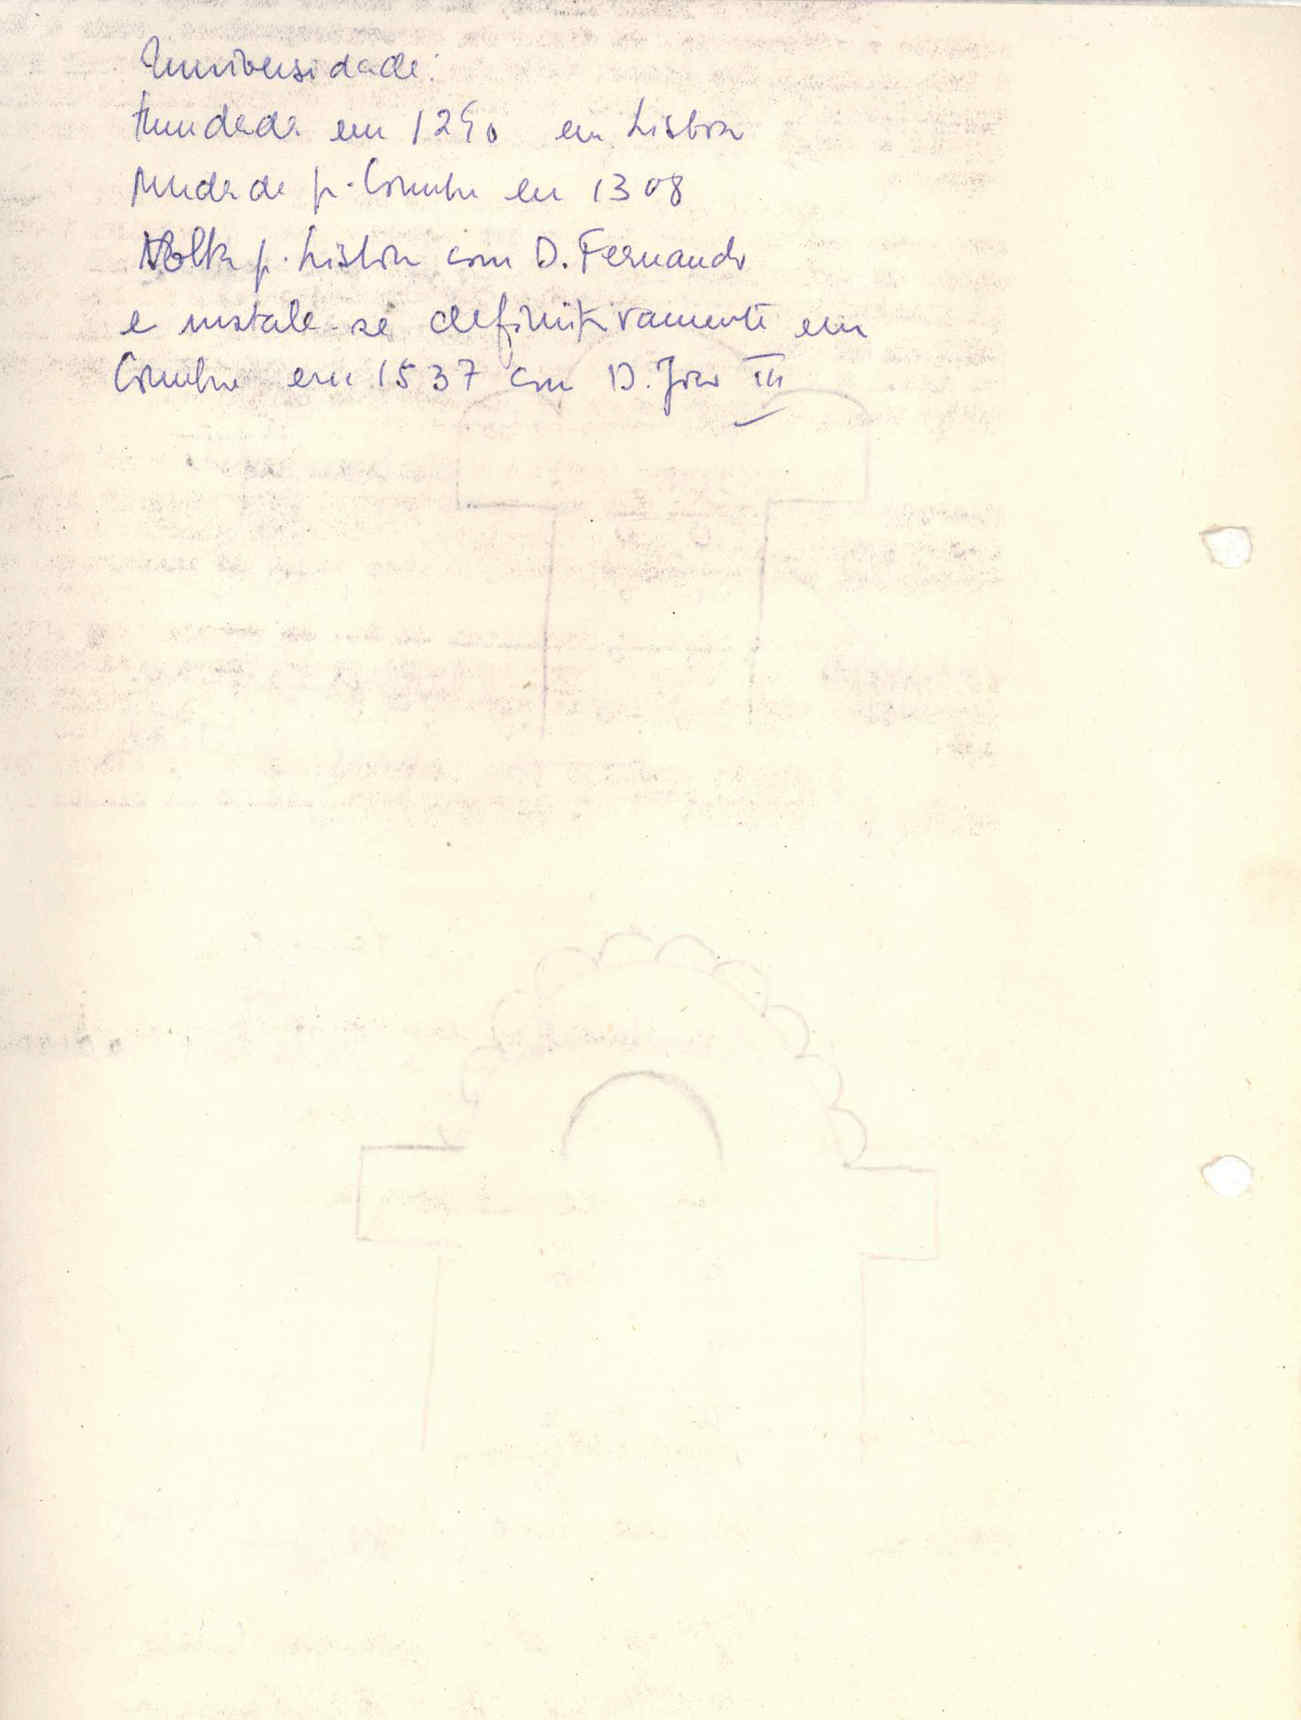 Universidade:
Fundada em 1290 em Lisboa
Mudada p. Coimbra em 1308
Volta p. Lisboa com D. Fernando
e instala-se definitivamente em
Coimbra em 1537 com D. João III